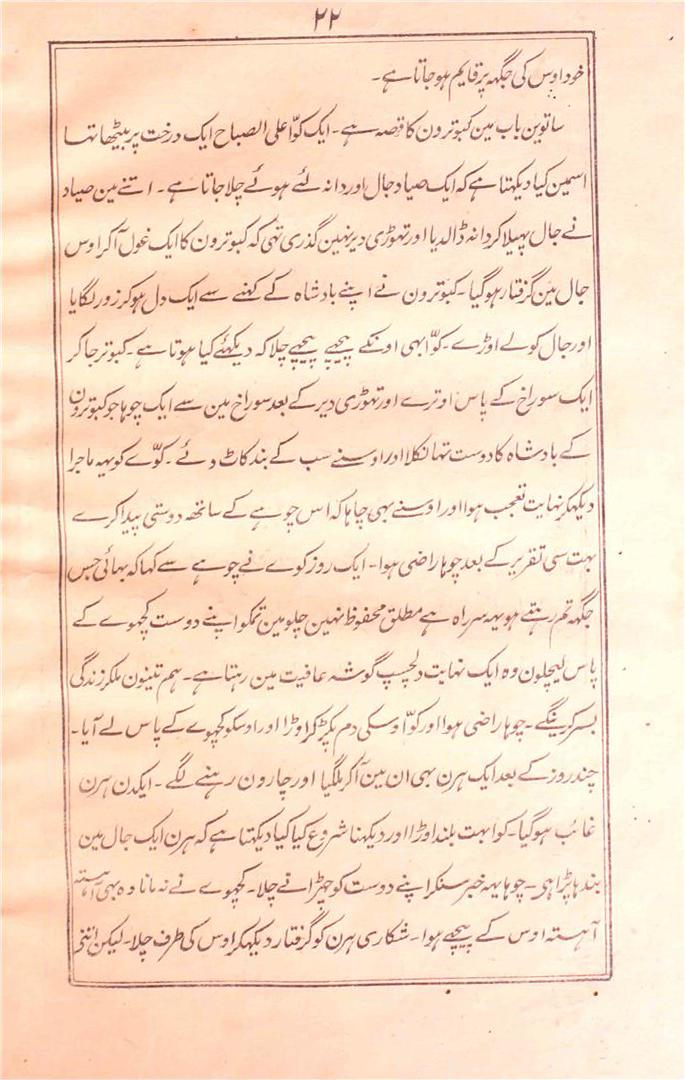 ۲۲
خود اوس کی جگہہ پر قایم ہو جاتا ہے۔
ساتوین باب مین کبوترون کا قصہ ہے۔ ایک کوّا علی الصباح ایک درخت پر بیٹھا تھا
اسمین کیا دیکھتا ہے کہ ایک صیاد جال اور دانہ لئے ہوئے چلا جاتا ہے۔ اتنے مین صیاد
نے جال پھیلا کر دانہ ڈالدیا اور تھوڑی دیر نہین گذری تھی کہ کبوترون کا ایک غول آ کر اوس
جال مین گرفتار ہو گیا۔ کبوترون نے اپنے بادشاہ کے کہنے سے ایک دل ہو کر زور لگایا
اور جال کو لے اوڑے۔ کوّا بھی اونکے پیچھے پیچھے چلا کہ دیکھئے کیا ہوتا ہے۔ کبوتر جا کر
ایک سوراخ کے پاس اوترے اور تھوڑی دیر کے بعد سوراخ مین سے ایک چوہا جو کبوترون
کے بادشاہ کا دوست تھا نکلا اور اوسنے سب کے بند کاٹ دئے۔ کوّے کو یہہ ماجرا
دیکھکر نہایت تعجب ہوا اور اوسنے بھی چاہا کہ اس چوہے کے ساتھ دوستی پیدا کرے
بہت سی تقریر کے بعد چوہا راضی ہوا۔ ایک روز کوے نے چوہے سے کہا کہ بھائی جس
جگہہ تم رہتے ہو یہہ سر راہ ہے مطلق محفوظ نہین چلو مین تمکو اپنے دوست کچھوے کے
پاس لیچلون وہ ایک نہایت دلچسپ گوشہ عافیت مین رہتا ہے۔ ہم تینون ملکر زندگی
بسر کرینگے۔ چوہا راضی ہوا اور کوّا اوسکی دم پکڑ کر اوڑا اور اوسکو کچھوے کے پاس لے آیا۔
چند روز کے بعد ایک ہرن بھی ان مین آکر ملگیا اور چارون رہنے لگے۔ ایکدن ہرن
غائب ہو گیا۔ کوا بہت بلند اوڑا اور دیکھنا شروع کیا کیا دیکھتا ہے کہ ہرن ایک جال مین
بندھا پڑا ہی۔ چوہا یہہ خبر سنکر اپنے دوست کو چھڑانے چلا۔ کچھوے نے نہ مانا وہ بھی آہستہ
آہستہ اوس کے پیچھے ہوا۔ شکاری ہرن کو گرفتار دیکھکر اوس کی طرف چلا۔ لیکن اتنے